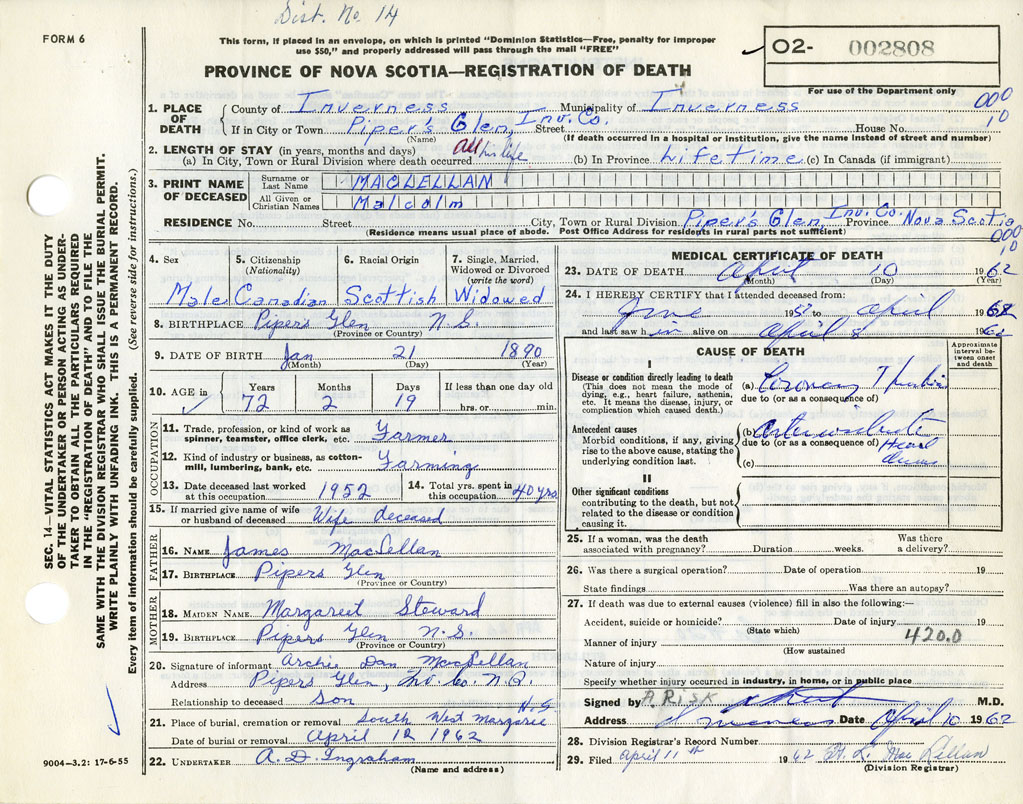 Dist. No. 14
FORM 6
This form, if placed in an envelope, on which is printed "Dominion Statistics—Free, penalty for improper
use $50," and properly addressed will pass through the mail "FREE"
02- 002808
For use of the Department only
PROVINCE OF NOVA SCOTIA—REGISTRATION OF DEATH
000
10
1. PLACE OF DEATH
County of Inverness Municipality of Inverness
If in City or Town Piper's Glen, Inv. Co. Street House No.
(Name) (If death occurred in a hospital or institution, give the name instead of street and number)
2. LENGTH OF STAY (in years, months and days)
(a) In City, Town or Rural Division where death occurred All his life (b) In Province Lifetime (c) In Canada (if immigrant)
3. PRINT NAME OF DECEASED
Surname or Last Name MACLELLAN
All Given or Christian Names Malcolm
RESIDENCE No. Street City, Town or Rural Division Piper's Glen, Inv. Co. Province Nova Scotia
(Residence means usual place of abode. Post Office Address for residents in rural parts not sufficient)
000
10
4. Sex
Male
5. Citizenship
(Nationality)
Canadian
6. Racial Origin
Scottish
7. Single, Married,
Widowed or Divorced
(write the word)
Widowed
8. BIRTHPLACE Pipers Glen N.S.
(Province or Country)
9. DATE OF BIRTH Jan 21 1890
(Month) (Day) (Year)
10. AGE in
Years Months Days If less than one day old
72 2 19 hrs. or min.
OCCUPATION
11. Trade, profession, or kind of work as
spinner, teamster, office clerk, etc. Farmer
12. Kind of industry or business, as cotton-
mill, lumbering, bank, etc. Farming
13. Date deceased last worked
at this occupation 1952
14. Total yrs. spent in
this occupation 40 yrs
15. If married give name of wife
or husband of deceased Wife deceased
FATHER
16. NAME James MacLellan
17. BIRTHPLACE Pipers Glen
(Province or Country)
MOTHER
18. MAIDEN NAME Margareet Steward
19. BIRTHPLACE Pipers Glen N.S.
(Province or Country)
20. Signature of informant Archie Dan MacLellan
Address Pipers Glen, Inv. Co. N.S.
Relationship to deceased Son
21. Place of burial, cremation or removal South West Margaree N.S
Date of burial or removal April 12 1962
22. UNDERTAKER A. D. Ingraham
(Name and address)
MEDICAL CERTIFICATE OF DEATH
23. DATE OF DEATH April 10 1962
(Month) (Day) (Year)
24. I HEREBY CERTIFY that I attended deceased from:
June 195 to April 1962
and last saw him alive on April 8 1962
CAUSE OF DEATH
Approximate
interval be-
tween onset
and death
I
Disease or condition directly leading to death
(This does not mean the mode of
dying, e.g., heart failure, asthenia,
etc. It means the disease, injury, or
complication which caused death.)
(a) Coronary
due to (or as a consequence of)
Antecedent causes
Morbid conditions, if any, giving
rise to the above cause, stating the
underlying condition last.
(b)
due to (or as a consequence of) Heart
(c)
II
Other significant conditions
contributing to the death, but not
related to the disease or condition
causing it.
25. If a woman, was the death
associated with pregnancy? Duration weeks. Was there
a delivery?
26. Was there a surgical operation? Date of operation 19
State findings Was there an autopsy?
27. If death was due to external causes (violence) fill in also the following:—
Accident, suicide or homicide? Date of injury 19
(State which)
Manner of injury 420.0
(How sustained
Nature of injury
Specify whether injury occurred in industry, in home, or in public place
Signed by A. RISK M.D.
Address Inverness Date April 10 1962
28. Division Registrar's Record Number
29. Filed April 11th 1962 L. MacLellan
(Division Registrar)
SEC. 14—VITAL STATISTICS ACT MAKES IT THE DUTY
OF THE UNDERTAKER OR PERSON ACTING AS UNDER-
TAKER TO OBTAIN ALL THE PARTICULARS REQUIRED
IN THE "REGISTRATION OF DEATH" AND TO FILE THE
SAME WITH THE DIVISION REGISTRAR WHO SHALL ISSUE THE BURIAL PERMIT.
WRITE PLAINLY WITH UNFADING INK. THIS IS A PERMANENT RECORD.
Every item of information should be carefully supplied. (See reverse side for instructions.)
9004—3.2: 17-6-55